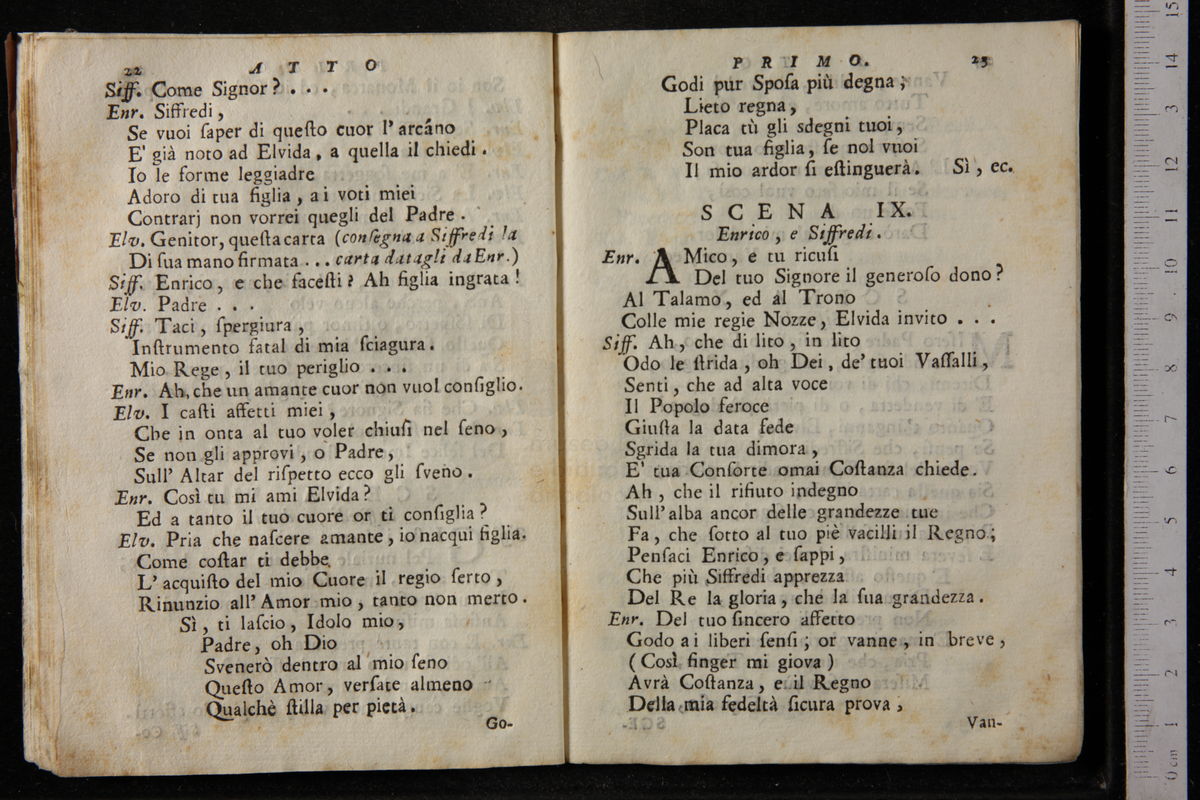 22 A T T O
Siff. Come Signor? . . .
Enr. Siffredi,
Se vuoi ſaper di queſto cuor l' arcáno
E' già noto ad Elvida, a quella il chiedi.
Io le forme leggiadre
Adoro di tua figlia, ai voti miei
Contrarj non vorrei quegli del Padre.
Elv. Genitor, queſta carta (conſegna a Siffredi la
Di ſua mano firmata ... carta datagli da Enr.)
Siff. Enrico, e che faceſti? Ah figlia ingrata!
Elv. Padre . . .
Siff. Taci, ſpergiura,
Inſtrumento fatal di mia ſciagura.
Mio Rege, il tuo periglio . . .
Enr. Ah, che un amante cuor non vuol conſiglio.
Elv. I caſti affetti miei,
Che in onta al tuo voler chiuſi nel ſeno,
Se non gli approvi, o Padre,
Sull' Altar del riſpetto ecco gli ſveno.
Enr. Così tu mi ami Elvida?
Ed a tanto il tuo cuore or ti conſiglia?
Elv. Pria che naſcere amante, io nacqui figlia.
Come coſtar ti debbe
L' acquiſto del mio Cuore il regio ſerto,
Rinunzio all' Amor mio, tanto non merto.
Sì, ti laſcio, Idolo mio,
Padre, oh Dio
Svenerò dentro al mio ſeno
Queſto Amor, verſate almeno
Qualchè ſtilla per pietà.
Go-
P R I M O. 23
Godi pur Spoſa più degna;
Lieto regna,
Placa tù gli sdegni tuoi,
Son tua figlia, ſe nol vuoi
Il mio ardor ſi eſtinguerà. Sì, ec.
S C E N A IX.
Enrico, e Siffredi.
Enr. AMico, e tu ricuſi
Del tuo Signore il generoſo dono?
Al Talamo, ed al Trono
Colle mie regie Nozze, Elvida invito . . .
Siff. Ah, che di lito, in lito
Odo le ſtrida, oh Dei, de' tuoi Vaſſalli,
Senti, che ad alta voce
Il Popolo feroce
Giuſta la data fede
Sgrida la tua dimora,
E' tua Conſorte omai Coſtanza chiede.
Ah, che il rifiuto indegno
Sull' alba ancor delle grandezze tue
Fa, che ſotto al tuo piè vacilli il Regno;
Penſaci Enrico, e ſappi,
Che più Siffredi apprezza
Del Re la gloria, che la ſua grandezza.
Enr. Del tuo ſincero affetto
Godo ai liberi ſenſi; or vanne, in breve,
(Così finger mi giova)
Avrà Coſtanza, e il Regno
Della mia fedeltà ſicura prova,
Van-
0 cm 1 2 3 4 5 6 7 8 9 10 11 12 13 14 15